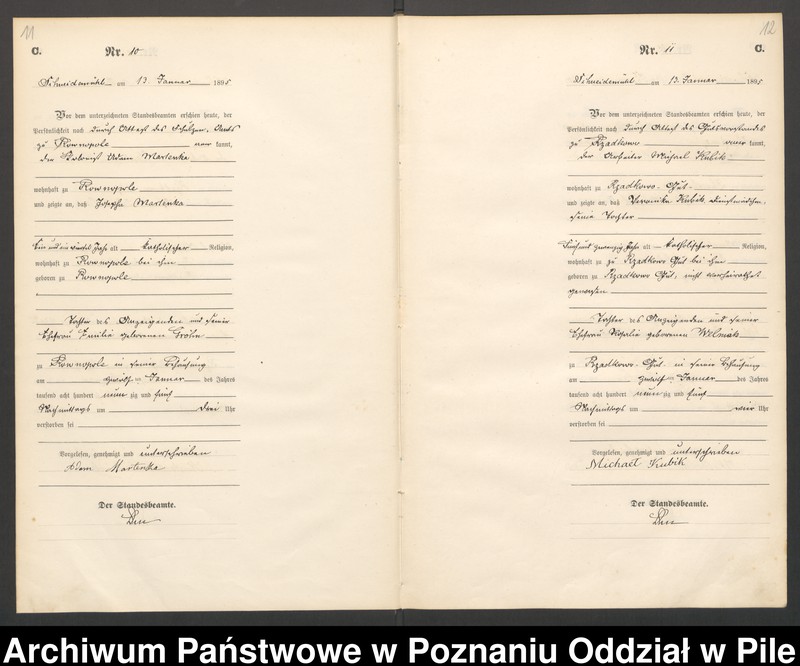 11
C.
Nr. 10
Schneidemühl am 13. Januar 1895
Vor dem unterzeichneten Standesbeamten erschien heute, der
Persönlichkeit nach durch Attest des Schulzen-Amts
zu Rownopole kannt,
der Kolonist Adam Martenka
wohnhaft zu Rownopole
und zeigte an, daß Josepha Martenka
alt katholischer Religion,
wohnhaft zu Rownopole bei ihm
geboren zu Rownopole
Tochter des Anzeigenden und seiner
Ehefrau Emilie geborenen
zu Rownopole in seiner Behausung
am zwölften Januar des Jahres
tausend acht hundert neunzig und fünf
Nachmittags um drei Uhr
verstorben sei
Vorgelesen, genehmigt und unterschrieben
Adam Martenka
Der Standesbeamte.
12
Nr. 11
C.
Schneidemühl am 13. Januar 1895
Vor dem unterzeichneten Standesbeamten erschien heute, der
Persönlichkeit nach durch Attest des Gutsvorstandes
zu Rzadkowo kannt,
der Arbeiter Michael Kubik
wohnhaft zu Rzadkowo-Gut
und zeigte an, daß Veronika Kubik, Dienstmädchen,
seine Tochter
alt katholischer Religion,
wohnhaft zu Rzadkowo Gut bei ihm
geboren zu Rzadkowo Gut, nicht verheirathet
gewesen
Tochter des Anzeigenden und seiner
Ehefrau Rosalie geborenen Welniak
zu Rzadkowo-Gut in seiner Behausung
am zwölften Januar des Jahres
tausend acht hundert neunzig und fünf
Nachmittags um vier Uhr
verstorben sei
Vorgelesen, genehmigt und unterschrieben
Michael Kubik
Der Standesbeamte.
Archiwum Państwowe w Poznaniu Oddział w Pile